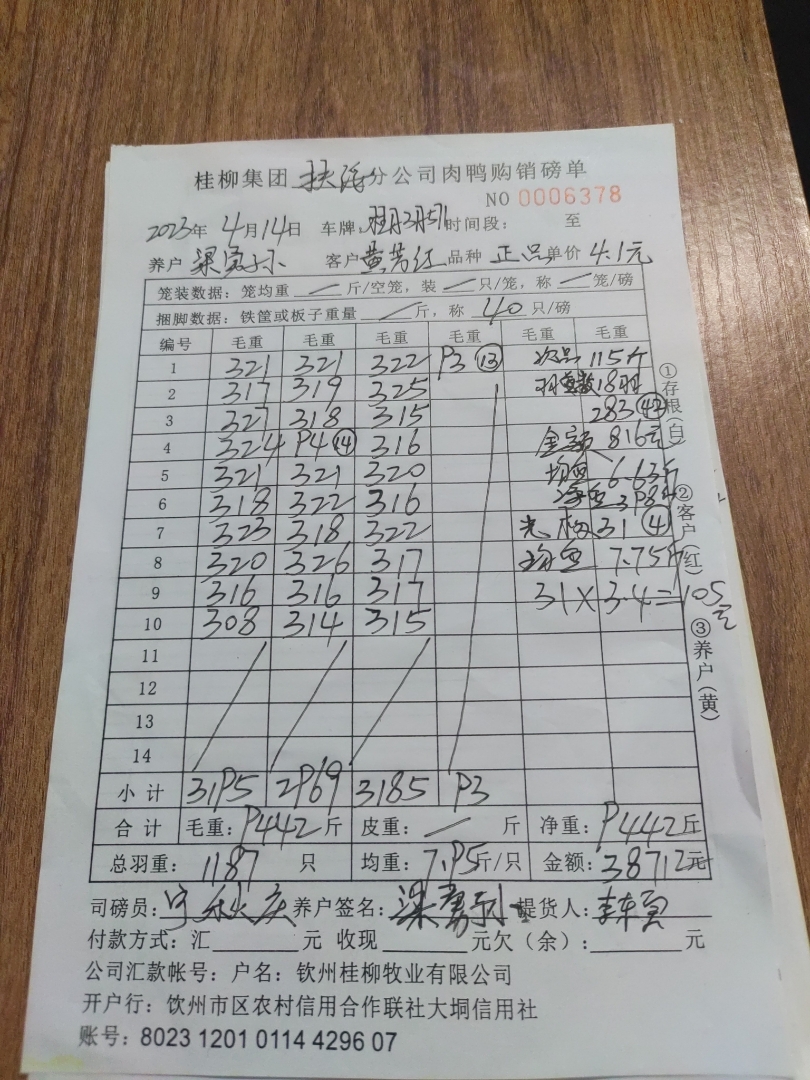 桂柳集团 分公司肉鸭购销磅单
NO 0006378
2023年 4月14日 车牌: 时间段: 至
养户 梁 客户 黄芳红 品种 正品 单价 4.1元
笼装数据: 笼均重 / 斤/空笼, 装 / 只/笼, 称 / 笼/磅
捆脚数据: 铁筐或板子重量 / 斤, 称 40 只/磅
编号 毛重 毛重 毛重 毛重 毛重 毛重
1 321 321 322 P3 ⑬ 次品 115斤
2 317 319 325 18羽
3 327 318 315 283 ㊸
4 324 P4 ⑭ 316 金额 816元
5 321 321 320 均重 6.63斤
6 318 322 316
7 323 318 322 31 ④
8 320 326 317 均重 7.75斤
9 316 316 317 31×3.4=105元
10 308 314 315
11
12
13
14
小计 31P5 2P69 3185 P3
合计 毛重: P442斤 皮重: / 斤 净重: P442斤
总羽重: 1187 只 均重: 7.P5斤/只 金额: 38712元
司磅员: 养户签名: 提货人:
付款方式: 汇 元 收现 元 欠(余): 元
公司汇款帐号: 户名: 钦州桂柳牧业有限公司
开户行: 钦州市区农村信用合作联社大垌信用社
账号: 8023 1201 0114 4296 07
①存根(白)
②客户(红)
③养户(黄)